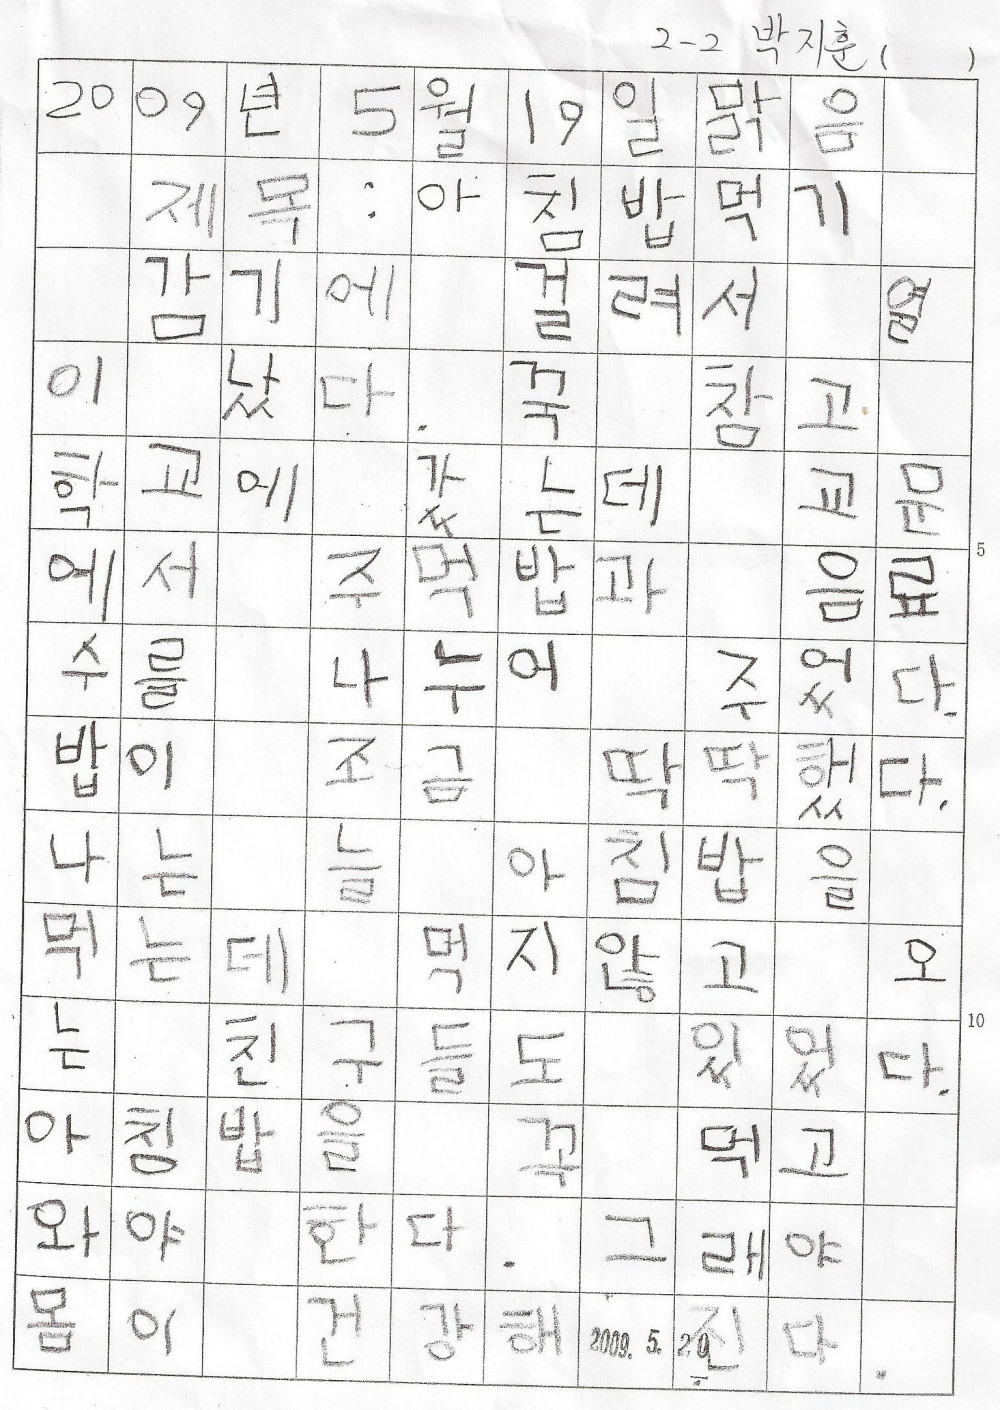 2-2 박지훈 ( )
2009년 5월 19일 맑음
제목 : 아침밥먹기
감기에 걸려서 열
이 났다. 꾹 참고
학교에 갔는데 교문
에서 주먹밥과 음료
수를 나누어 주었다.
밥이 조금 딱딱했다.
나는 늘 아침밥을
먹는데 먹지 않고 오
는 친구들도 있었다.
아침밥을 꼭 먹고
와야 한다. 그래야
몸이 건강해진다.
2009. 5. 20
5
10